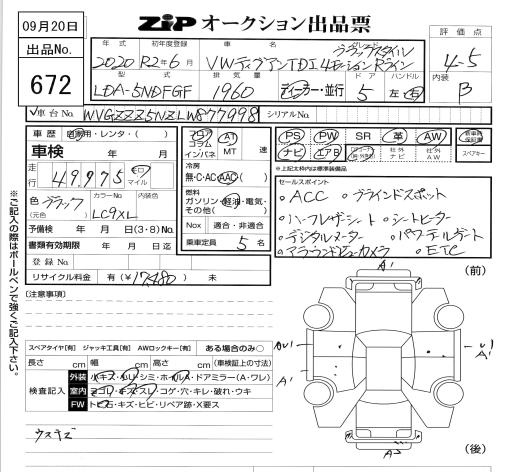 09月20日
ZiP オークション出品票
出品No.
672
評価点
4-5
内装
B
年式 初年度登録 車名 グレード
2020 R2年6月 VWティグアンTDI 4モーションRライン
ブラックスタイル
型式 排気量 ドア ハンドル
LDA-5NDFGF 1960 ディーラー・並行 5 左・右
車台No. WVGZZZ5NZLW877998 シリアルNo.
車歴 自家用・レンタ・( )
車検 年 月 日
走行 49,975 キロ マイル
色 ブラック カラーNo. LC9XL
(元色 )
予備検 年 月 日(3・8)No.
書類有効期限 年 月 日迄
登録No.
リサイクル料金 有(¥17,480) 未
フロア コラム インパネ AT MT 速
冷房
無・C・AC・AAC( )
燃料
ガソリン・軽油・電気・
その他( )
Nox 適合・非適合
乗車定員 5 名
PS PW SR 革 AW 新車時保証書
ナビ エアB 社外ナビ 社外AW スペアキー
※上記太枠内は標準装備品
セールスポイント
・ACC ・ブラインドスポット
・ハーフレザーシート ・シートヒーター
・デジタルメーター ・パワーテールゲート
・アラウンドビューカメラ ・ETC
※ご記入の際はボールペンで強くご記入下さい。
[注意事項]
スペアタイヤ[有] ジャッキ工具[有] AWロックキー[有] ある場合のみ○
長さ cm 幅 cm 高さ cm (車検証上の寸法)
検査記入
外装 小キズ・凹・シミ・ホイル・ドアミラー(A・ワレ)
室内 ヨゴレ・キズ・スレ・コゲ・穴・キレ・破れ・ウキ
FW トビ石・キズ・ヒビ・リペア跡・X要ス
ウスキズ
(前)
A'
A'
A'
(後)